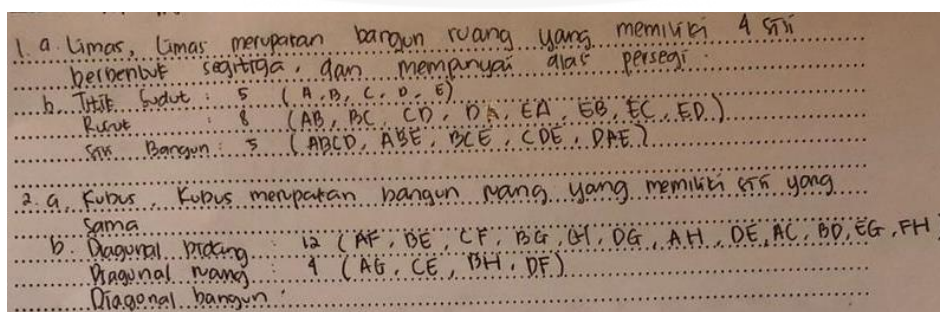 1. a. Limas, Limas merupakan bangun ruang yang memiliki 4 sisi
berbentuk segitiga, dan mempunyai alas persegi.
b. Titik Sudut : 5 (A, B, C, D, E)
Rusuk : 8 (AB, BC, CD, DA, EA, EB, EC, ED)
sisi Bangun : 5 (ABCD, ABE, BCE, CDE, DAE)
2. a. Kubus, Kubus merupakan bangun ruang yang memiliki sisi yang
sama
b. Diagonal bidang : 12 (AF, BE, CF, BG, CH, DG, AH, DE, AC, BD, EG, FH)
Diagonal ruang : 4 (AG, CE, BH, DF)
Diagonal bangun :